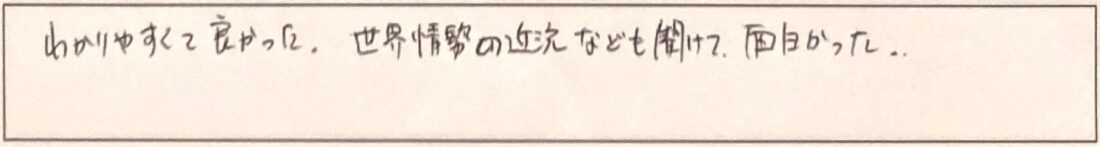 わかりやすくて良かった。世界情勢の近況なども聞けて、面白かった。